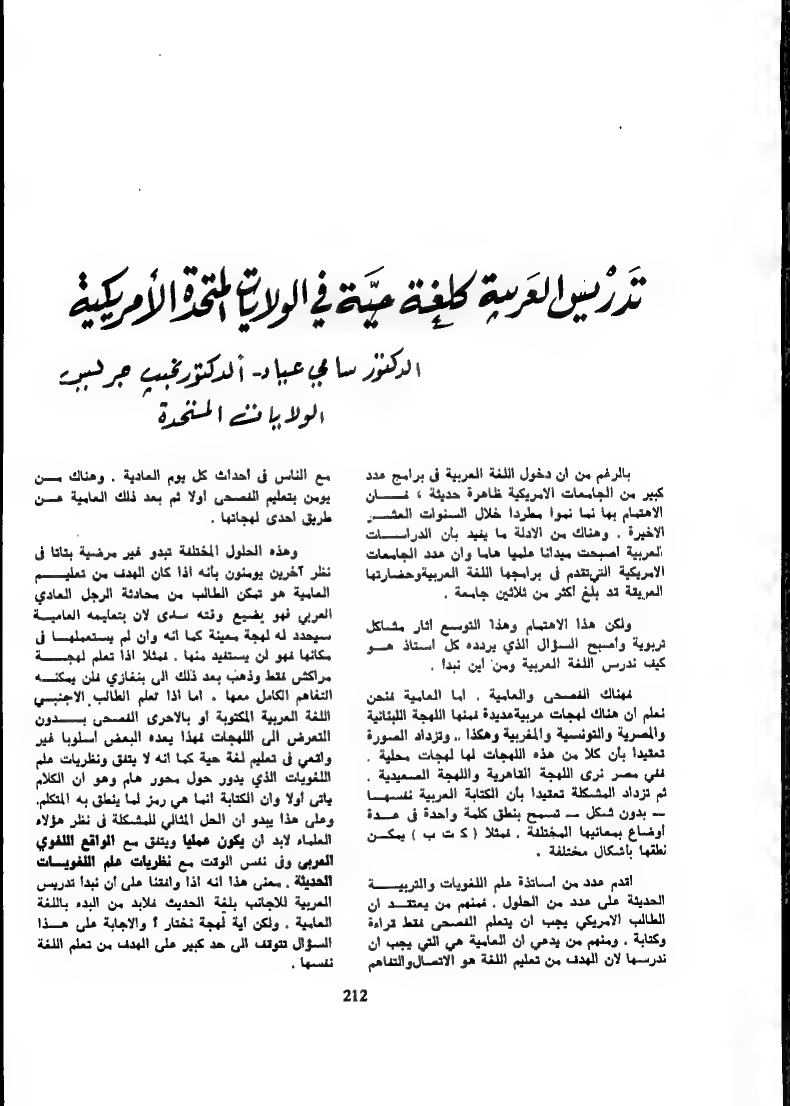 تدريس العربية كلغة حيّة في الولايات المتحدة الأمريكية
الدكتور سامي عياد - الدكتور نجيب جرجس
الولايات المتحدة
بالرغم من ان دخول اللغة العربية فى برامج عدد
كبير من الجامعات الامريكية ظاهرة حديثة ، فـــان
الاهتمام بها نما نموا مطردا خلال السنوات العشــر
الاخيرة . وهناك من الادلة ما يفيد بأن الدراســـات
العربية اصبحت ميدانا علميا هاما وان عدد الجامعات
الامريكية التي تقدم فى برامجها اللغة العربية وحضارتها
العريقة قد بلغ أكثر من ثلاثين جامعة .
ولكن هذا الاهتمام وهذا التوسع اثار مشاكل
تربوية وأصبح السؤال الذي يردده كل استاذ هــو
كيف ندرس اللغة العربية ومن اين نبدا .
فهناك الفصحى والعامية . اما العامية فنحن
نعلم ان هناك لهجات عربية عديدة فمنها اللهجة اللبنانية
والمصرية والتونسية والمغربية وهكذا .. وتزداد الصورة
تعقيدا بأن كلا من هذه اللهجات لها لهجات محلية .
ففي مصر نرى اللهجة القاهرية واللهجة الصعيدية .
ثم تزداد المشكلة تعقيدا بأن الكتابة العربية نفسهــا
— بدون شكل — تسمح بنطق كلمة واحدة فى عــدة
أوضاع بمعانيها المختلفة . فمثلا ( ك ت ب ) يمكــن
نطقها بأشكال مختلفة .
أقدم عدد من أساتذة علم اللغويات والتربيـــة
الحديثة على عدد من الحلول . فمنهم من يعتقــد ان
الطالب الامريكي يجب ان يتعلم الفصحى فقط قراءة
وكتابة . ومنهم من يدعي ان العامية هي التي يجب ان
ندرسها لان الهدف من تعليم اللغة هو الاتصال والتفاهم
مع الناس فى أحداث كل يوم العادية . وهناك مــن
يومن بتعليم الفصحى أولا ثم بعد ذلك العامية عــن
طريق احدى لهجاتها .
وهذه الحلول المختلفة تبدو غير مرضية بتاتا فى
نظر آخرين يومنون بأنه اذا كان الهدف من تعليــم
العامية هو تمكن الطالب من محادثة الرجل العادي
العربي فهو يضيع وقته سدى لان بتعليمه العاميــة
سيحدد له لهجة معينة كما انه وان لم يستعملهــا فى
مكانها فهو لن يستفيد منها . فمثلا اذا تعلم لهجــة
مراكش فقط وذهب بعد ذلك الى بنغازي فلن يمكنــه
التفاهم الكامل معها . اما اذا تعلم الطالب الاجنبــي
اللغة العربية المكتوبة أو بالاحرى الفصحى بــدون
التعرض الى اللهجات فهذا يعده البعض اسلوبا غير
واقعي فى تعليم لغة حية كما انه لا يتفق ونظريات علم
اللغويات الذي يدور حول محور هام وهو ان الكلام
ياتى أولا وان الكتابة انما هي رمز لما ينطق به المتكلم.
وعلى هذا يبدو ان الحل المثالي للمشكلة فى نظر هؤلاء
العلماء لابد ان يكون عمليا ويتفق مع الواقع اللغوي
العربى وفى نفس الوقت مع نظريات علم اللغويــات
الحديثة . معنى هذا انه اذا وافقنا على أن نبدأ تدريس
العربية للاجانب بلغة الحديث فلابد من البدء باللغة
العامية . ولكن أية لهجة نختار أ والاجابة على هــذا
السؤال تتوقف الى حد كبير على الهدف من تعلم اللغة
نفسها .
212